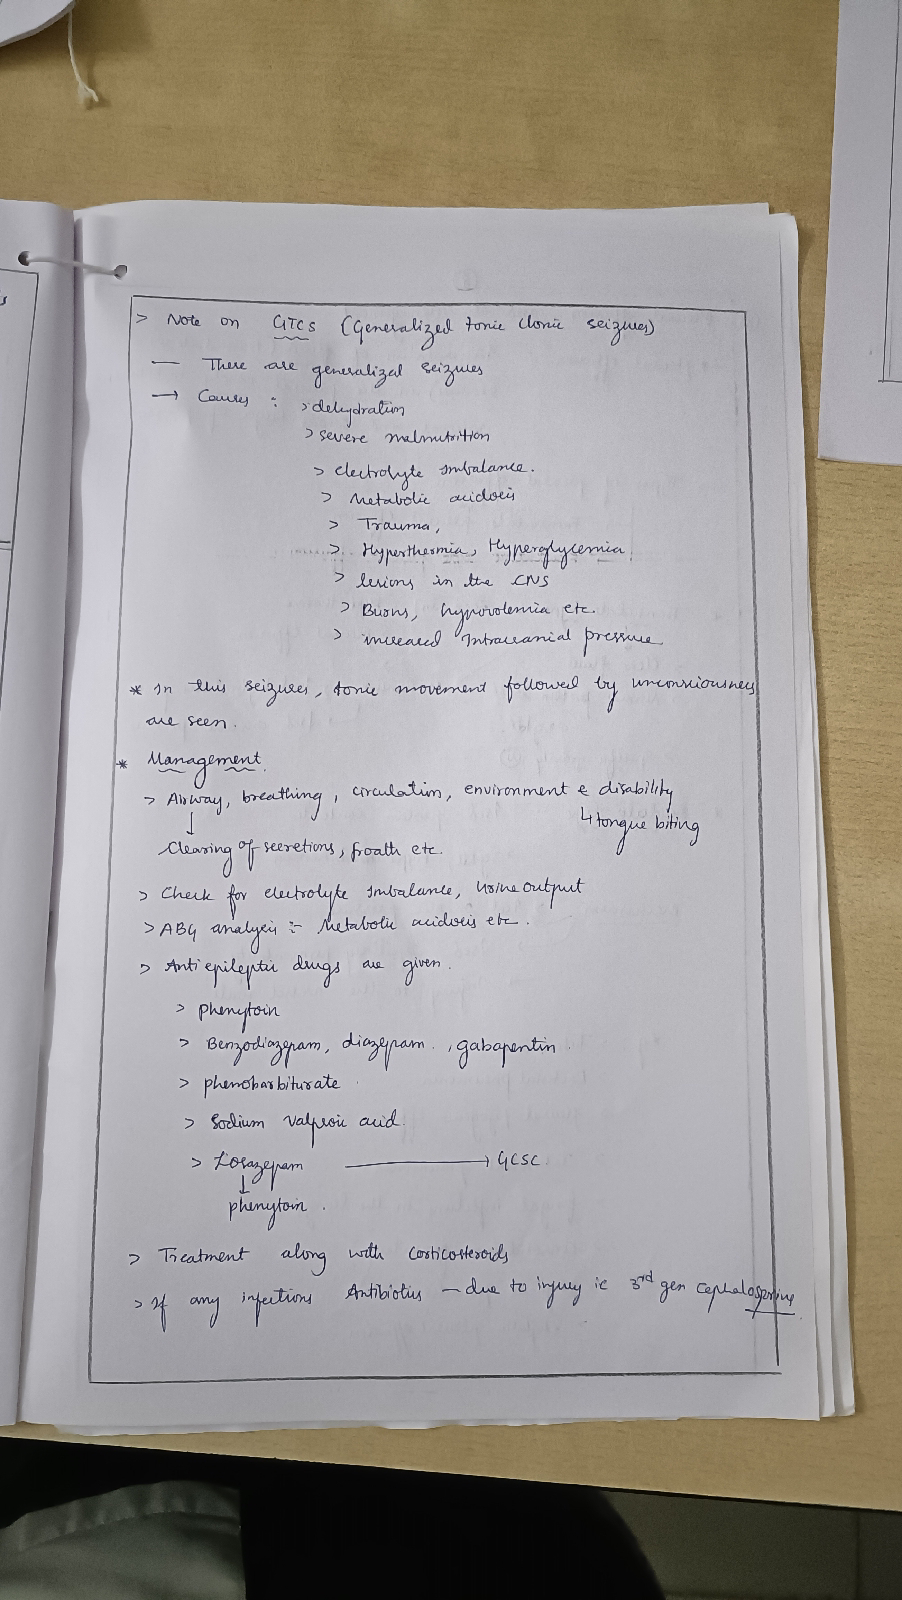 > Note on GTCS (Generalized tonic clonic seizures)
— There are generalized seizures
→ Causes : > dehydration
> severe malnutrition
> electrolyte imbalance.
> Metabolic acidosis
> Trauma,
> Hyperthermia, Hyperglycemia
> lesions in the CNS
> Burns, hypovolemia etc.
> increased Intracranial pressure
* In this seizures, tonic movement followed by unconsciousness
are seen.
* Management
> Airway, breathing, circulation, environment & disability
↳ tongue biting
↓
Clearing of secretions, froath etc.
> Check for electrolyte imbalance, urine output
> ABG analysis :- Metabolic acidosis etc.
> Antiepileptic drugs are given.
> phenytoin
> Benzodiazepam, diazepam, gabapentin
> phenobarbiturate
> Sodium valproic acid.
> Lorazepam → GCSC
↓
phenytoin.
> Treatment along with corticosteroids
> If any infections Antibiotics — due to injury ie 3rd gen cephalosprins